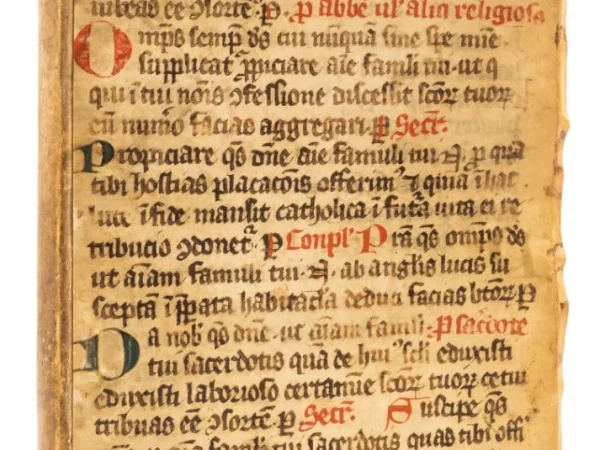 iubeas eē ꝯsortē ꝑ. ꝑ abbē ul' alio religioso
Omps semp ds cui nūquā sine spe mīe
supplicat ꝓpiciare aīe famli tui ut q
qui ī tui nōīs ꝯfessione discessit scōꝝ tuoꝝ
nūo facias aggregari. ꝑ Secr.
Propiciare qs dne aīe famuli tui .N. ꝓ qua
tibi hostias placacōīs offerim' ⁊ quia ī hac
luce ī fide mansit catholica ī futā uita ei re
tribucio ꝯdonet. ꝑ Conpl' Pra qs omps ds
ut aīam famuli tui .N. ab anglis lucis su
sceptā ī ꝑata habitacla deduci facias btōꝝ ꝑ
Da nob qs dne ut aīam famli. ꝑ sacdote
tui sacerdotis quā de hui' scli eduxisti
eduxisti laborioso certamīe scōꝝ tuoꝝ cetui
tribuas eē ꝯsortē ꝑ Secr. Suscipe qs
famli tui sacerdotis quas tibi offi